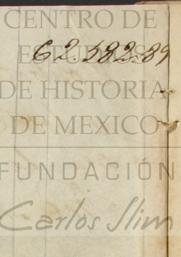 CENTRO DE
62.582-89
DE HISTORIA
DE MEXICO
FUNDACIÓN
Carlos Slim